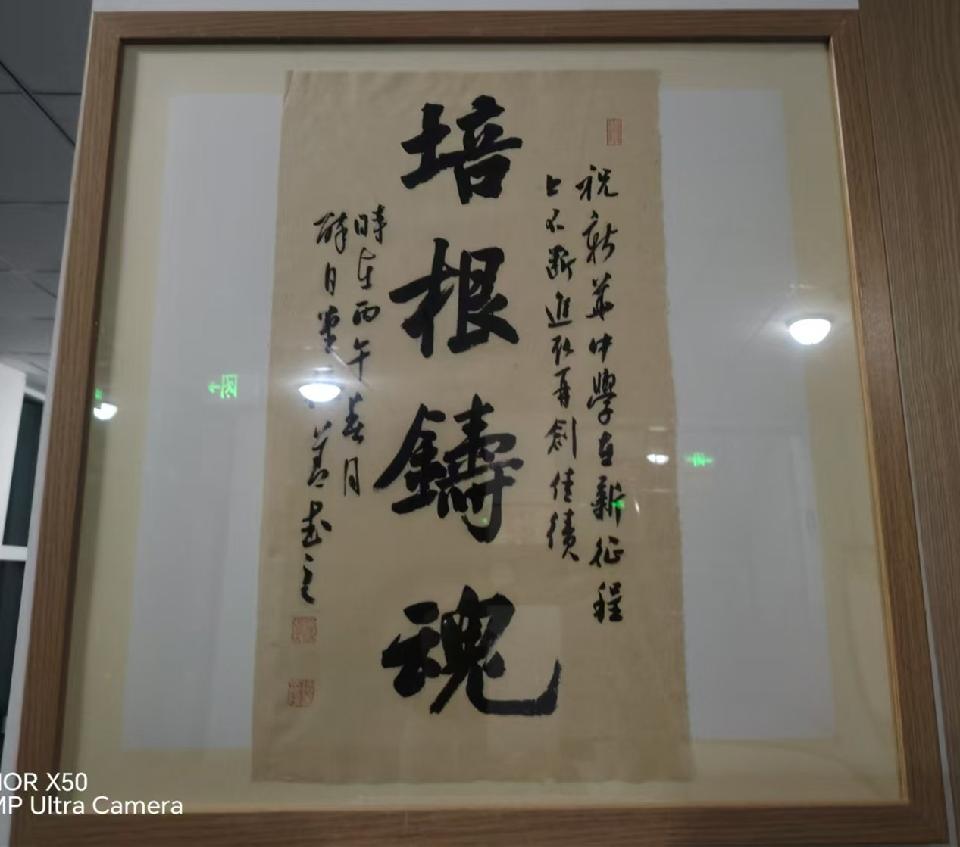 祝新華中學在新征程
上不斷進取再創佳績
培根鑄魂
時在丙午春月
醉月堂
善武
HOR X50
MP Ultra Camera